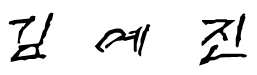 김 예 진